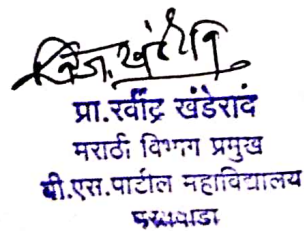 प्रा.रवींद्र खंडेराव
मराठी विभाग प्रमुख
बी.एस.पाटील महाविद्यालय
परतवाडा